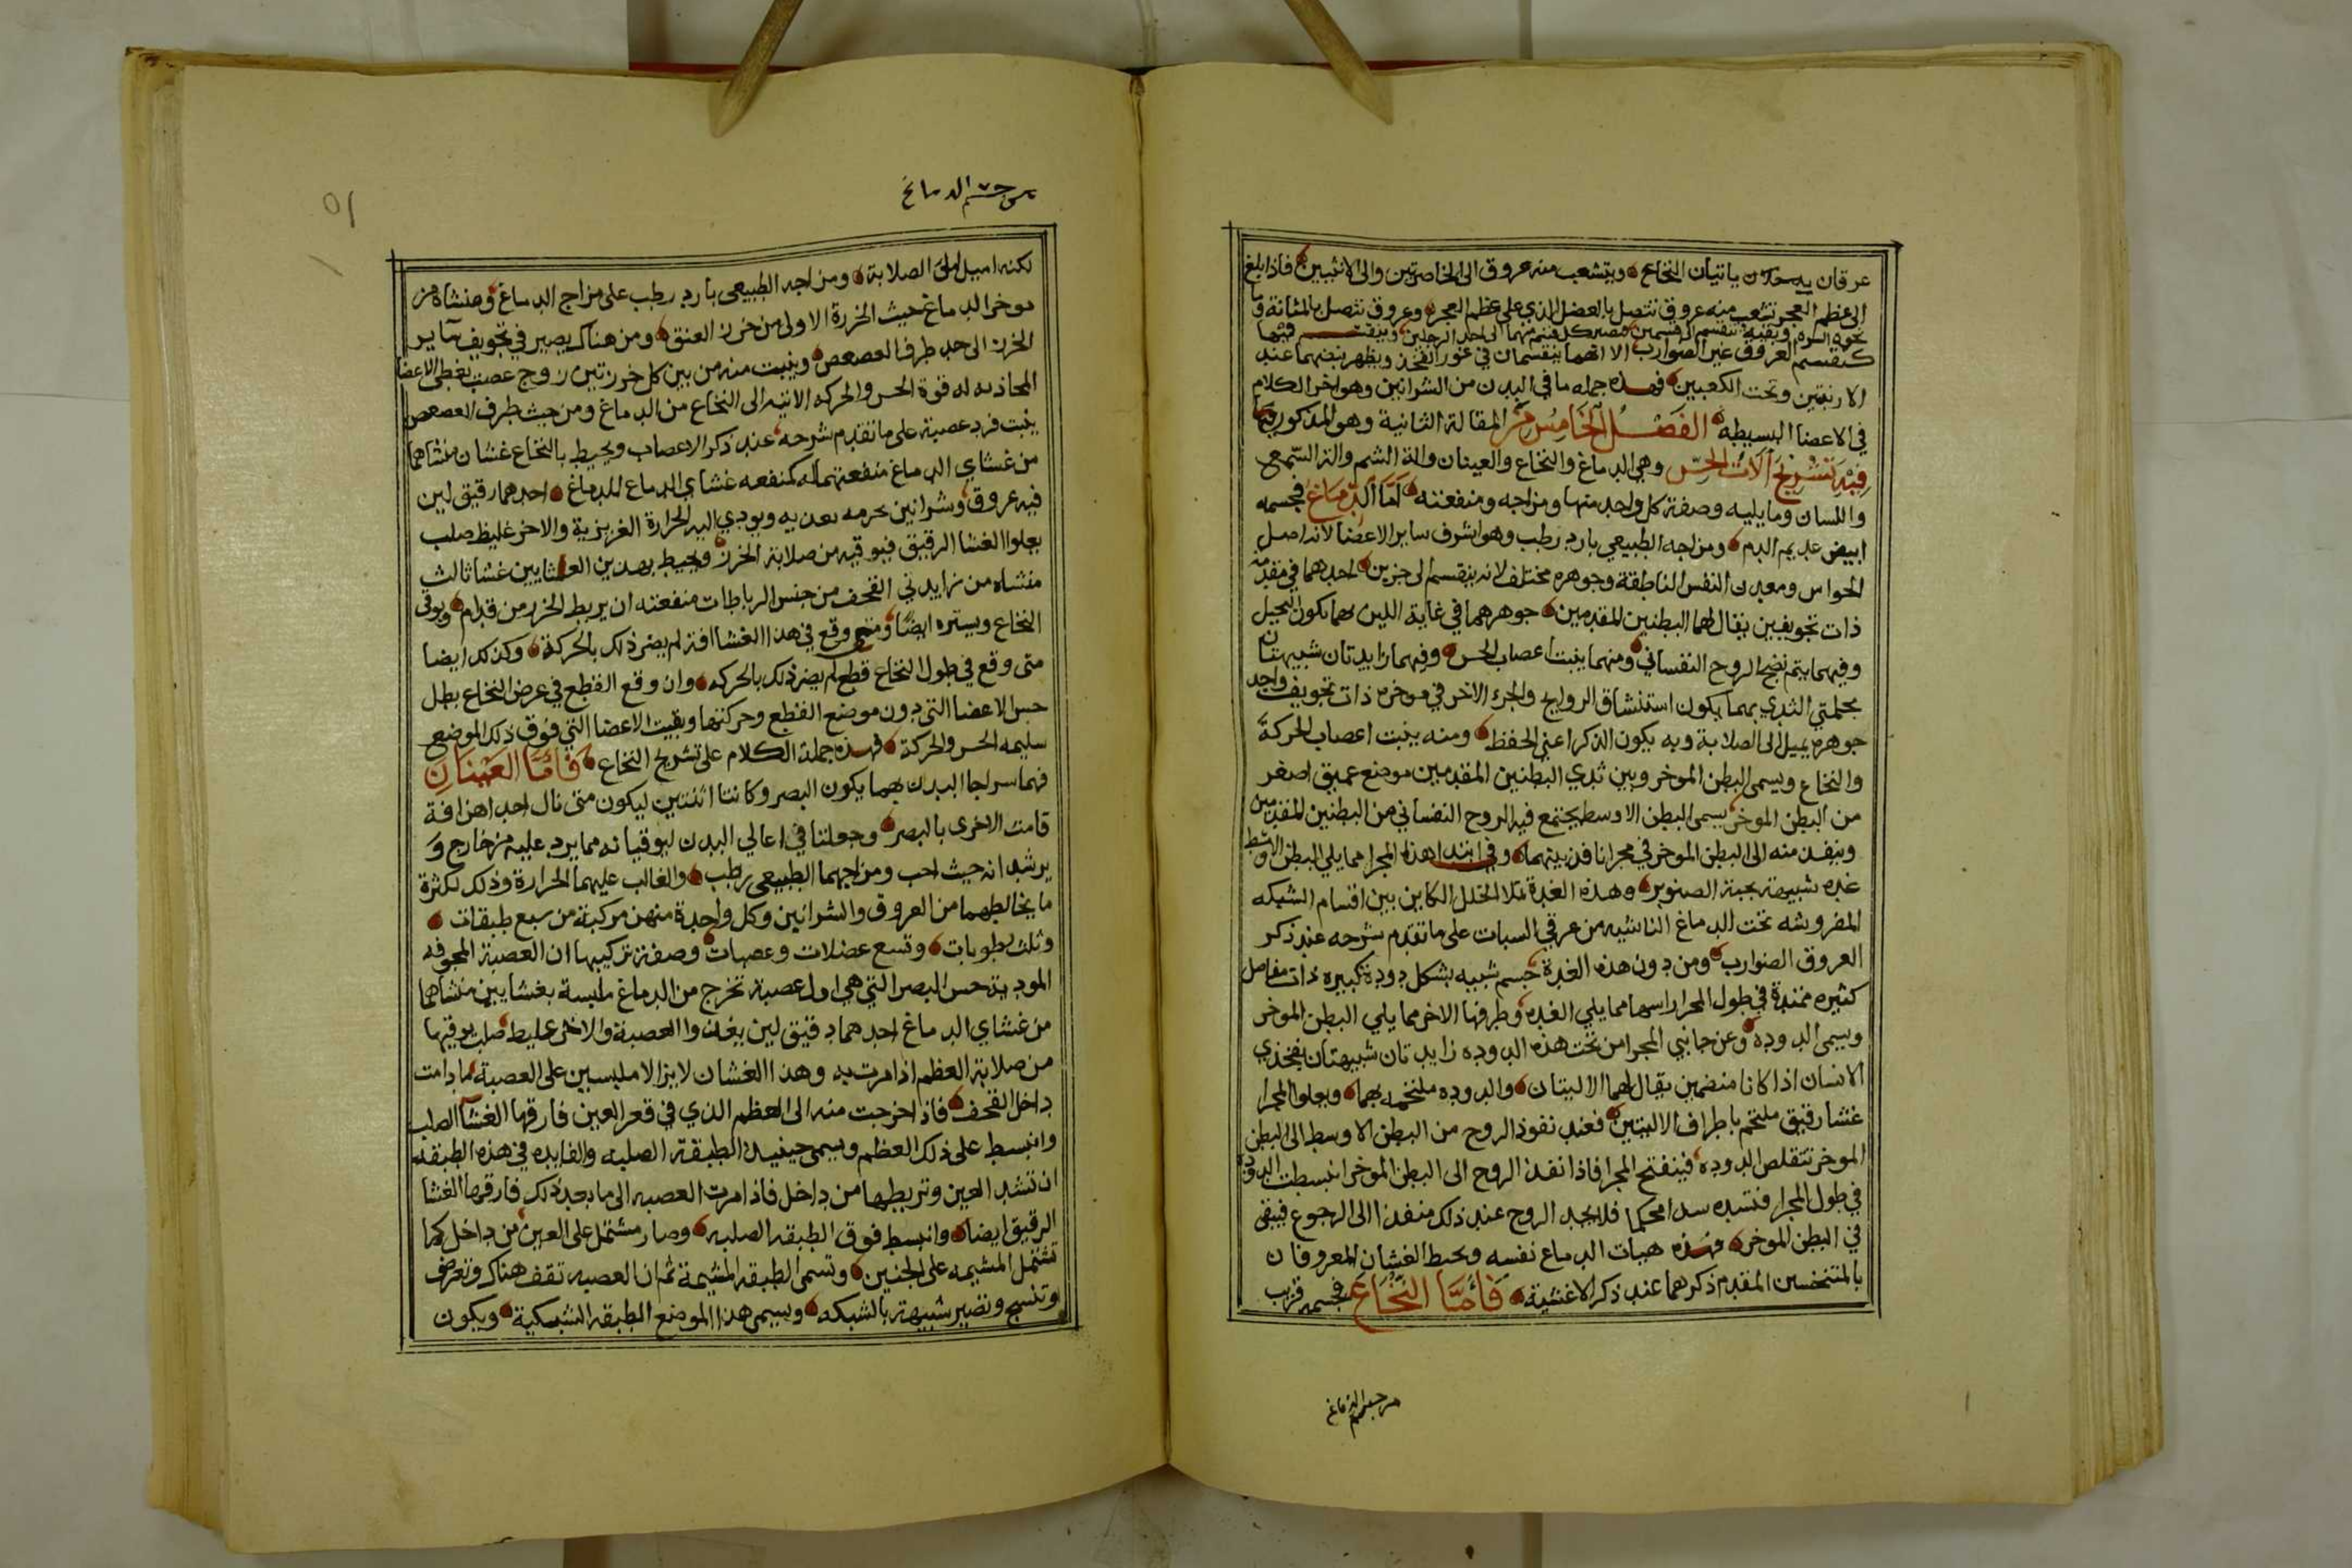 عرقان يدخلان ياتيان النخاع ويتشعب منه عروق الى الخاصرتين والى الانثيين فاذا بلغ
الى عظم العجز تشعب منه عروق تتصل بالعضل الذي على عظم العجز وعروق تتصل بالمثانة وما
نحوه السره وبقيته تنقسم الى قسمين فيصير كل قسم منهما الى احد الرجلين وينقسم فيهما
كتقسم العروق غير الضوارب الا انهما ينقسمان في غور الفخذ ويظهر نبضهما عند
الاربتين وتحت الكعبين فهذه جمله ما في البدن من الشرائين وهو اخر الكلام
في الاعضا البسيطه الفصل الخامس من المقالة الثانية وهو المذكور
فيه تشريح آلات الحس وهي الدماغ والنخاع والعينان والة الشم والة السمع
واللسان وما يليه وصفة كل واحد منها ومزاجه ومنفعته اما الدماغ فجسمه
ابيض عديم الدم ومزاجه الطبيعي بارد رطب وهو اشرف ساير الاعضا لانه اصل
الحواس ومعدن النفس الناطقة وجوهره مختلف لانه ينقسم الى جزين احدهما في مقدمه
ذات تجويفين يقال لهما البطنين المقدمين جوهرهما في غاية اللين بهما يكون التخيل
وفيهما يتم نضج الروح النفساني ومنهما ينبت اعصاب الحس وفيهما زايدتان شبيهتان
بحلمتي الثدي بهما يكون استنشاق الروايح والجزء الاخر في موخره ذات تجويف واحد
جوهره يميل الى الصلابة وبه يكون الذكر اعني الحفظ ومنه ينبت اعصاب الحركة
والنخاع ويسمى البطن الموخر وبين ثدي البطنين المقدمين موضع عميق اصغر
من البطن الموخر يسمى البطن الاوسط يجتمع فيه الروح النفساني من البطنين المقدمين
وينفد منه الى البطن الموخر في مجرا نافد بينهما وفي ابتدا هذا المجرا مما يلي البطن الاوسط
غده شبيهة بحبة الصنوبر وهذه الغدة تملا الخلل الكاين بين اقسام الشبكه
المفروشه تحت الدماغ الناشيه من عرقي السبات على ما تقدم شرحه عند ذكر
العروق الضوارب ومن دون هذه الغدة جسم شبيه بشكل دودة كبيره ذات مفاصل
كثيره ممتدة في طول المجرا راسها مما يلي الغده وطرفها الاخر مما يلي البطن الموخر
ويسمى الدوده وعن جانبي المجرا من تحت هذه الدوده زايدتان شبيهتان بفخذي
الانسان اذا كانا منضمين يقال لهما الاليتان والدوده ملتحمه بهما ويعلوا المجرا
غشا رقيق ملتحم باطراف الاليتين فعند نفوذ الروح من البطن الاوسط الى البطن
الموخر تتقلص الدوده فينفتح المجرا فاذا نفذ الروح الى البطن الموخر انبسطت الدوده
في طول المجرا فتسده سدا محكما فلا يجد الروح عند ذلك منفذا الى الرجوع فيبقى
في البطن الموخر فهذه هيات الدماغ نفسه ويحيط الغشان المعروفان
بالمتنخسين المقدم ذكرهما عند ذكر الاغشية فاما النخاع فجسم قريب
من جسم الدماغ
من جسم الدماغ
٥١
لكنه اميل الى الصلابة ومزاجه الطبيعي بارد رطب على مزاج الدماغ ومنشاه من
موخر الدماغ حيث الخرزة الاولى من خرز العنق ومن هناك يصير في تجويف ساير
الخرز الى حد طرف العصعص وينبت منه من بين كل خرزتين زوج عصب يعطى الاعضا
المحاذيه له قوة الحس والحركه الاتيه الى النخاع من الدماغ ومن حيث طرف العصعص
ينبت فرد عصبية على ما تقدم شرحه عند ذكر الاعصاب ويحيط بالنخاع غشان منشاهما
من غشاي الدماغ منفعتهما له كمنفعه غشاي الدماغ للدماغ احدهما رقيق لين
فيه عروق وشرائين بحرمه تغديه ويودي اليه الحرارة الغريزية والاخر غليظ صلب
يعلوا الغشا الرقيق فيوقيه من صلابة الخرز ويحيط بهدين الغشايين غشا ثالث
منشاه من زايدتي القحف من جنس الرباطات منفعته ان يربط الخرز من قدام ويوقى
النخاع ويستره ايضا ومتى وقع في هذا الغشا افة لم يضر ذلك بالحركة وكذلك ايضا
متى وقع في طول النخاع قطع لم يضر ذلك بالحركه وان وقع القطع في عرض النخاع بطل
حس الاعضا التي دون موضع القطع وحركتها وبقيت الاعضا التي فوق ذلك الموضع
سليمه الحس والحركة فهذه جملة الكلام على تشريح النخاع فاما العينان
فهما سراجا البدن بهما يكون البصر وكانتا اثنتين ليكون متى نال احداهن افة
قامت الاخرى بالبصر وجعلتا في اعالي البدن ليوقيانه مما يرد عليه من خارج و
يرشدانه حيث احب ومزاجهما الطبيعي رطب والغالب عليهما الحرارة وذلك لكثرة
ما يخالطهما من العروق والشرائين وكل واحدة منهن مركبة من سبع طبقات
وثلث رطوبات وتسع عضلات وعصبات وصفة تركيبها ان العصبة المجوفه
المودية حس البصر التي هي اول عصبة تخرج من الدماغ ملبسة بغشايين منشاهما
من غشاي الدماغ احدهما دقيق لين يغذوا العصبة والاخر غليظ صلب يوقيها
من صلابة العظم اذا مرت به وهذا الغشان لا يزالا ملبسين على العصبة ما دامت
داخل القحف فاذا خرجت منه الى العظم الذي في قعر العين فارقها الغشا الصلب
وانبسط على ذلك العظم ويسمى حينيذ الطبقة الصلبه والفايده في هذه الطبقه
ان تشد العين وتربطها من داخل فاذا مرت العصبه الى ما بعد ذلك فارقها الغشا
الرقيق ايضا وانبسط فوق الطبقه الصلبه وصار مشتمل على العين من داخل كما
تشتمل المشيمه على الجنين وتسمى الطبقه المشيمة ثم ان العصبه تقف هناك وتعرض
وتنسج وتصير شبيهة بالشبكه ويسمى هذا الموضع الطبقه الشبكية ويكون